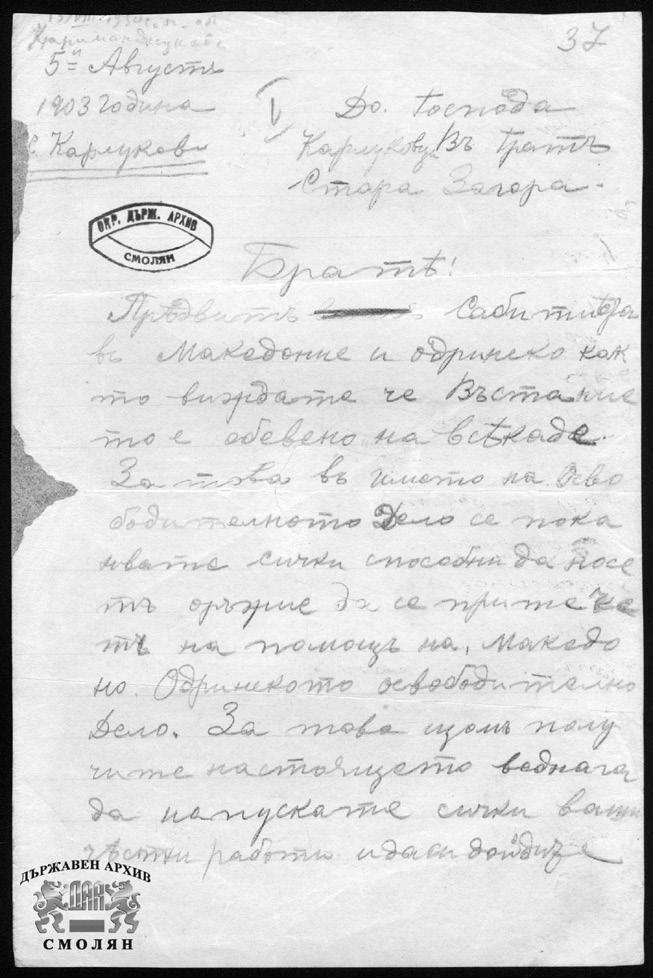 37
5ᵘ Августъ
1903 година
с. Карлукови
До. Господа
Карлуковци Въ Градъ
Стара Загора.
ОКР. ДЪРЖ. АРХИВ
СМОЛЯН
Братѣ!
Прѣдвитъ сабитиѣта
въ Македоние и одринско как
то виждате че Въстание
то е обевено на всѣкаде.
За това въ името на Осво
бодителното Дело се пока
нвате сички способни да носе
тъ оръжие да се притече
тъ на помощъ на. Македо
но. Одринското освободително
Дело. За това щомъ полу
чите настоящето веднага
да напускате сички ваши
чѣстни работи и да си дойдите
ДЪРЖАВЕН АРХИВ
ДАА
СМОЛЯН